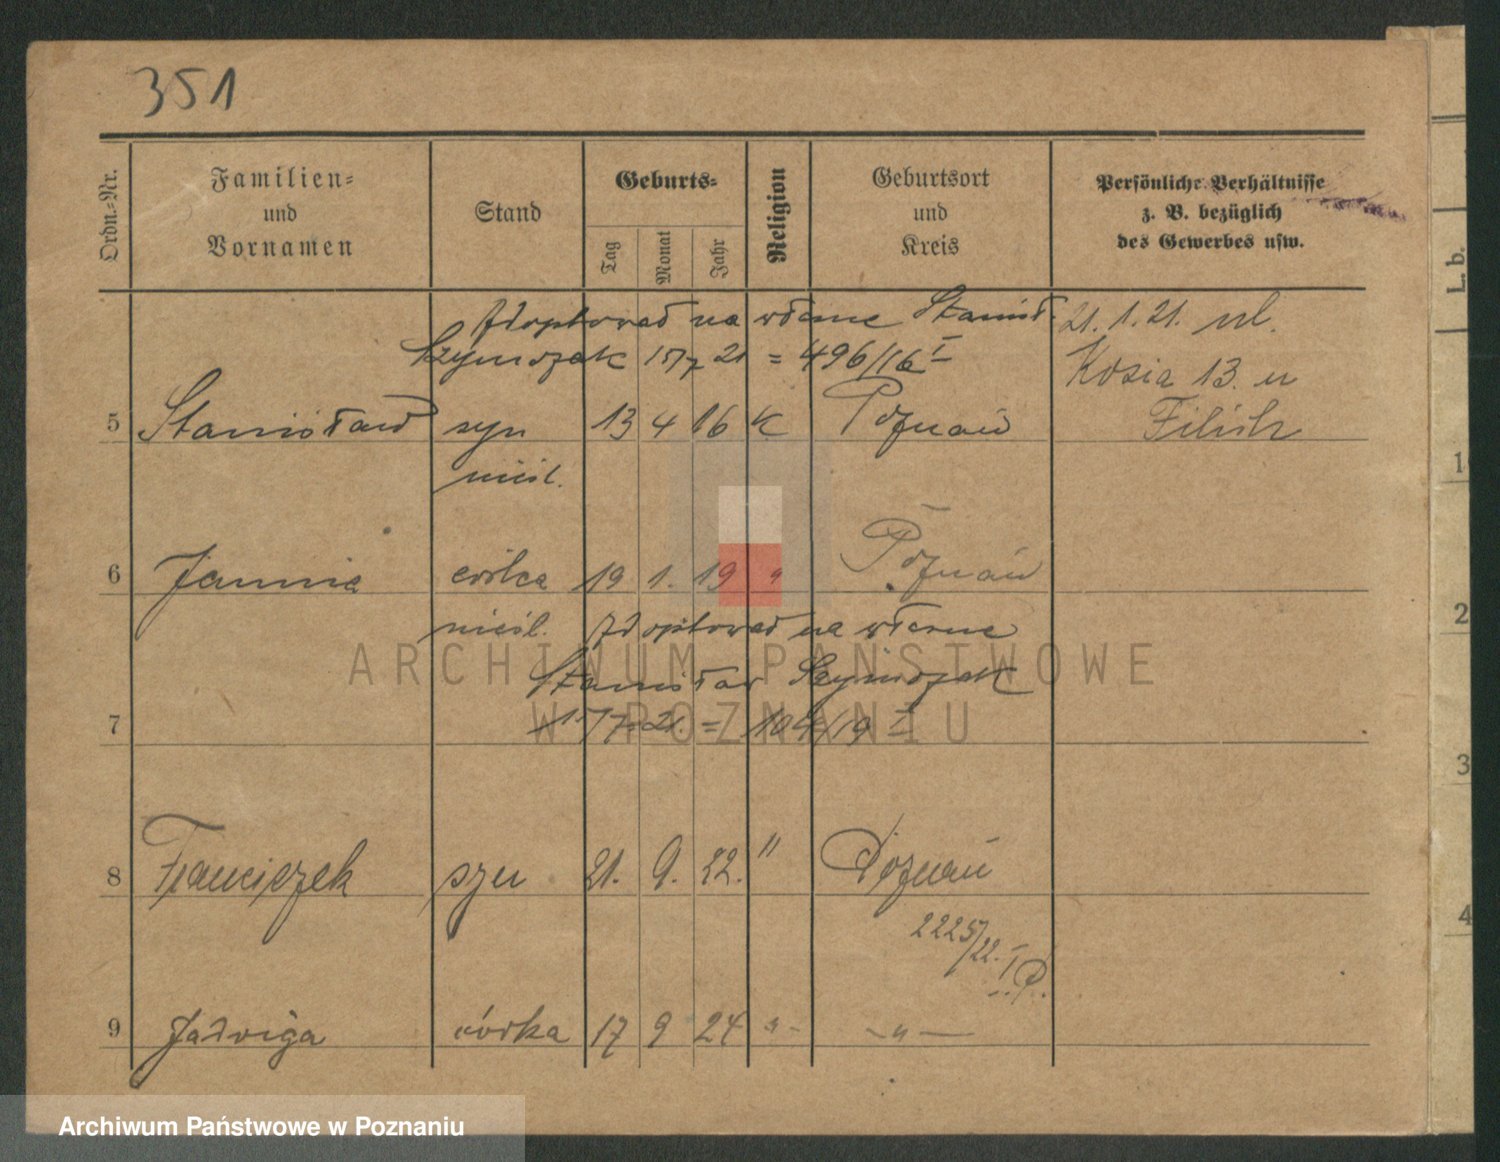 351
Ordn.-Nr.
Familien-
und
Vornamen
Stand
Geburts-
Tag
Monat
Jahr
Religion
Geburtsort
und
Kreis
Persönliche Verhältnisse
z. B. bezüglich
des Gewerbes usw.
L. b.
Adoptował na własne Stanisł.
Szymczak 15/7 21 = 496/16 I
21. 1. 21. ul.
Kosia 13. u
5 Stanisław syn 13 4 16 K Poznań
nieśl.
6 Janina córka 19 1. 19 " Poznań
nieśl. Adoptował na własne
Stanisław Szymczak
7 15/7 21. = 104/19 I
8 Franciszek syn 21. 9. 22. " Poznań
2225/22. I P.
9 Jadwiga córka 17 9 24 " - - " -
1
2
3
4
ARCHIWUM PAŃSTWOWE
W POZNANIU
Archiwum Państwowe w Poznaniu